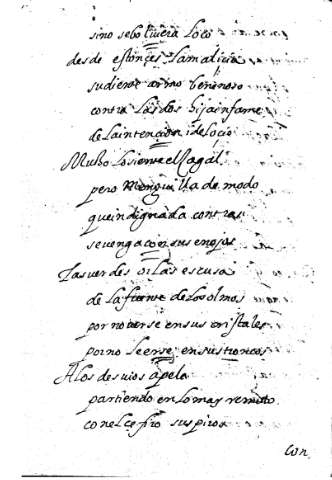 sino sebolviera loco
desde estonçes la maliçia
su diente armo benenoso
contra los dos hija infame
de la intencion i del oçio
Mucho lo siente el Zagal
pero Menguilla de modo
que indignada contra si
se venga con sus enojos
Las verdes orillas escusa
de la fuente de los olmos
por no verse en sus cristales
por no leerse en sus troncos
A los desvios apela
partiendo en lo mas remoto
con el cefiro suspiros
con